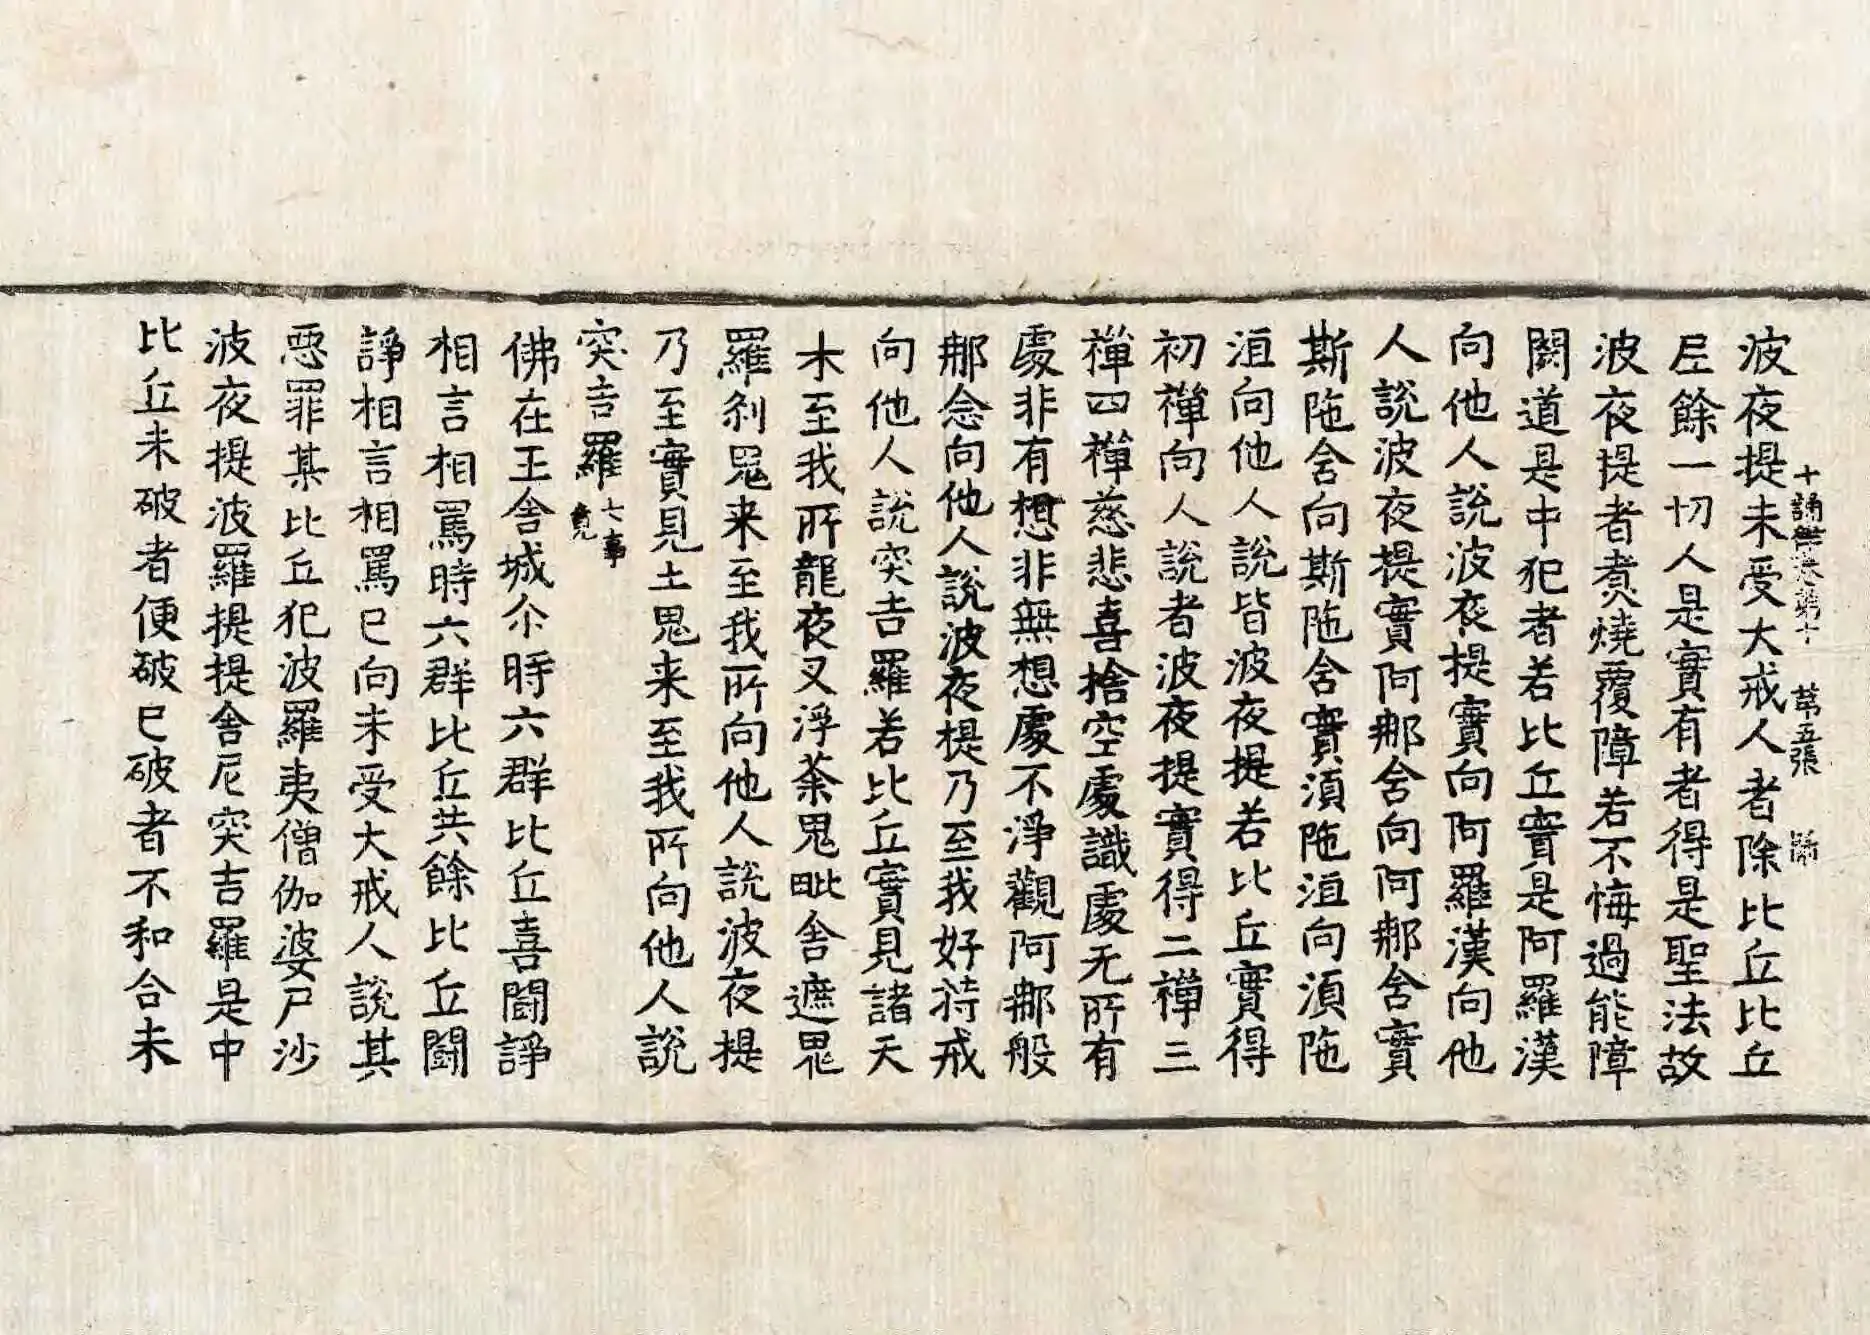 十誦律卷第十 第五張
波夜提未受大戒人者除比丘比丘
尼餘一切人是實有者得是聖法故
波夜提者煑燒覆障若不悔過能障
閡道是中犯者若比丘實是阿羅漢
向他人說波夜提實向阿羅漢向他
人說波夜提實阿那舍向阿那舍實
斯陁舍向斯陁舍實湏陁洹向湏陁
洹向他人說皆波夜提若比丘實得
初禪向人說者波夜提實得二禪三
禪四禪慈悲喜捨空處識處无所有
處非有想非無想處不淨觀阿那般
那念向他人說波夜提乃至我好持戒
向他人說突吉羅若比丘實見諸天
來至我所龍夜叉浮荼鬼毗舍遮鬼
羅剎鬼来至我所向他人說波夜提
乃至實見土鬼来至我所向他人說
突吉羅 七事竟
佛在王舍城尒時六群比丘喜闘諍
相言相罵時六群比丘共餘比丘闘
諍相言相罵已向未受大戒人說其
惡罪某比丘犯波羅夷僧伽婆尸沙
波夜提波羅提提舍尼突吉羅是中
比丘未破者便破已破者不和合未